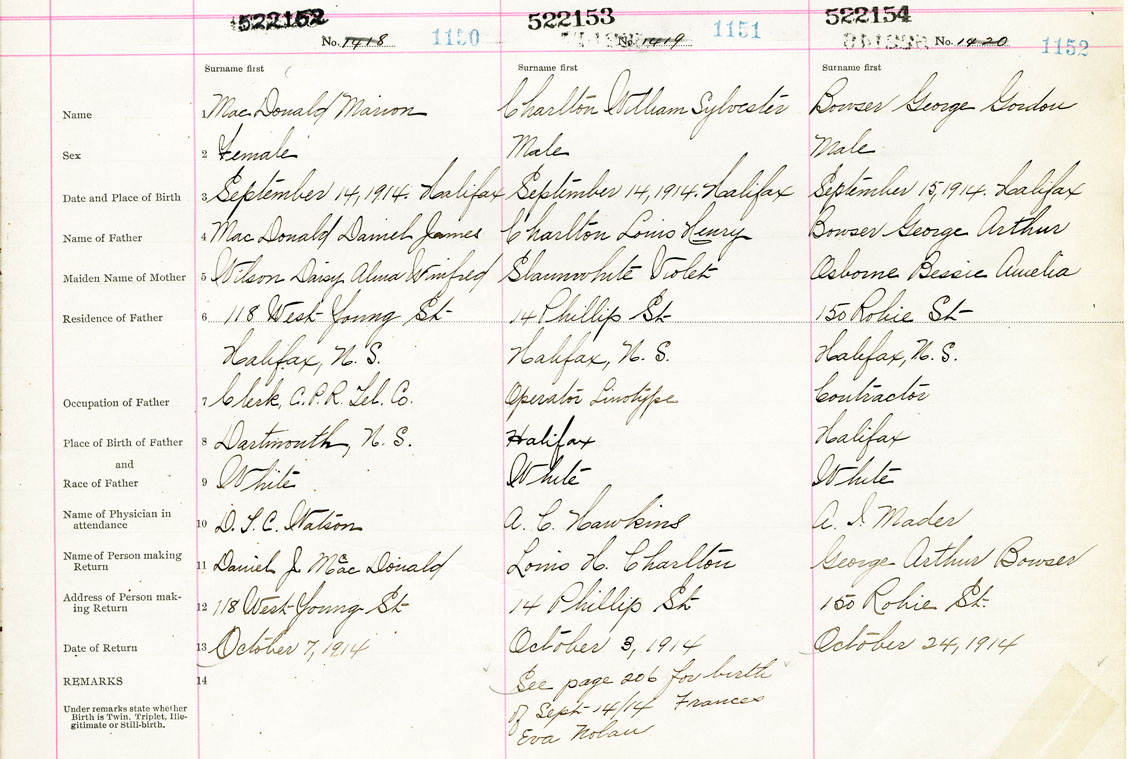 522152 522153 522154
No. 1418 1150 No. 1419 1151 No. 1420 1152
Surname first Surname first Surname first
Name 1 MacDonald Marion Charlton William Sylvester Bowser George Gordon
Sex 2 Female Male Male
Date and Place of Birth 3 September 14, 1914. Halifax September 14, 1914. Halifax September 15, 1914. Halifax
Name of Father 4 MacDonald Daniel James Charlton Louis Henry Bowser George Arthur
Maiden Name of Mother 5 Wilson Daisy Alma Winifred Slaunwhite Violet Osborne Bessie Amelia
Residence of Father 6 118 West Young St 14 Phillip St 150 Robie St
Halifax, N. S. Halifax, N. S. Halifax, N. S.
Occupation of Father 7 Clerk, C.P.R. Tel. Co. Operator Linotype Contractor
Place of Birth of Father 8 Dartmouth, N. S. Halifax Halifax
and
Race of Father 9 White White White
Name of Physician in
attendance 10 D. T. C. Watson A. C. Hawkins A. I. Mader
Name of Person making
Return 11 Daniel J. MacDonald Louis H. Charlton George Arthur Bowser
Address of Person mak-
ing Return 12 118 West Young St 14 Phillip St 150 Robie St.
Date of Return 13 October 7, 1914 October 3, 1914 October 24, 1914
REMARKS 14 See page 206 for birth
Under remarks state whether of Sept 14/14 Frances
Birth is Twin, Triplet, Ille- Eva Nolan
gitimate or Still-birth.